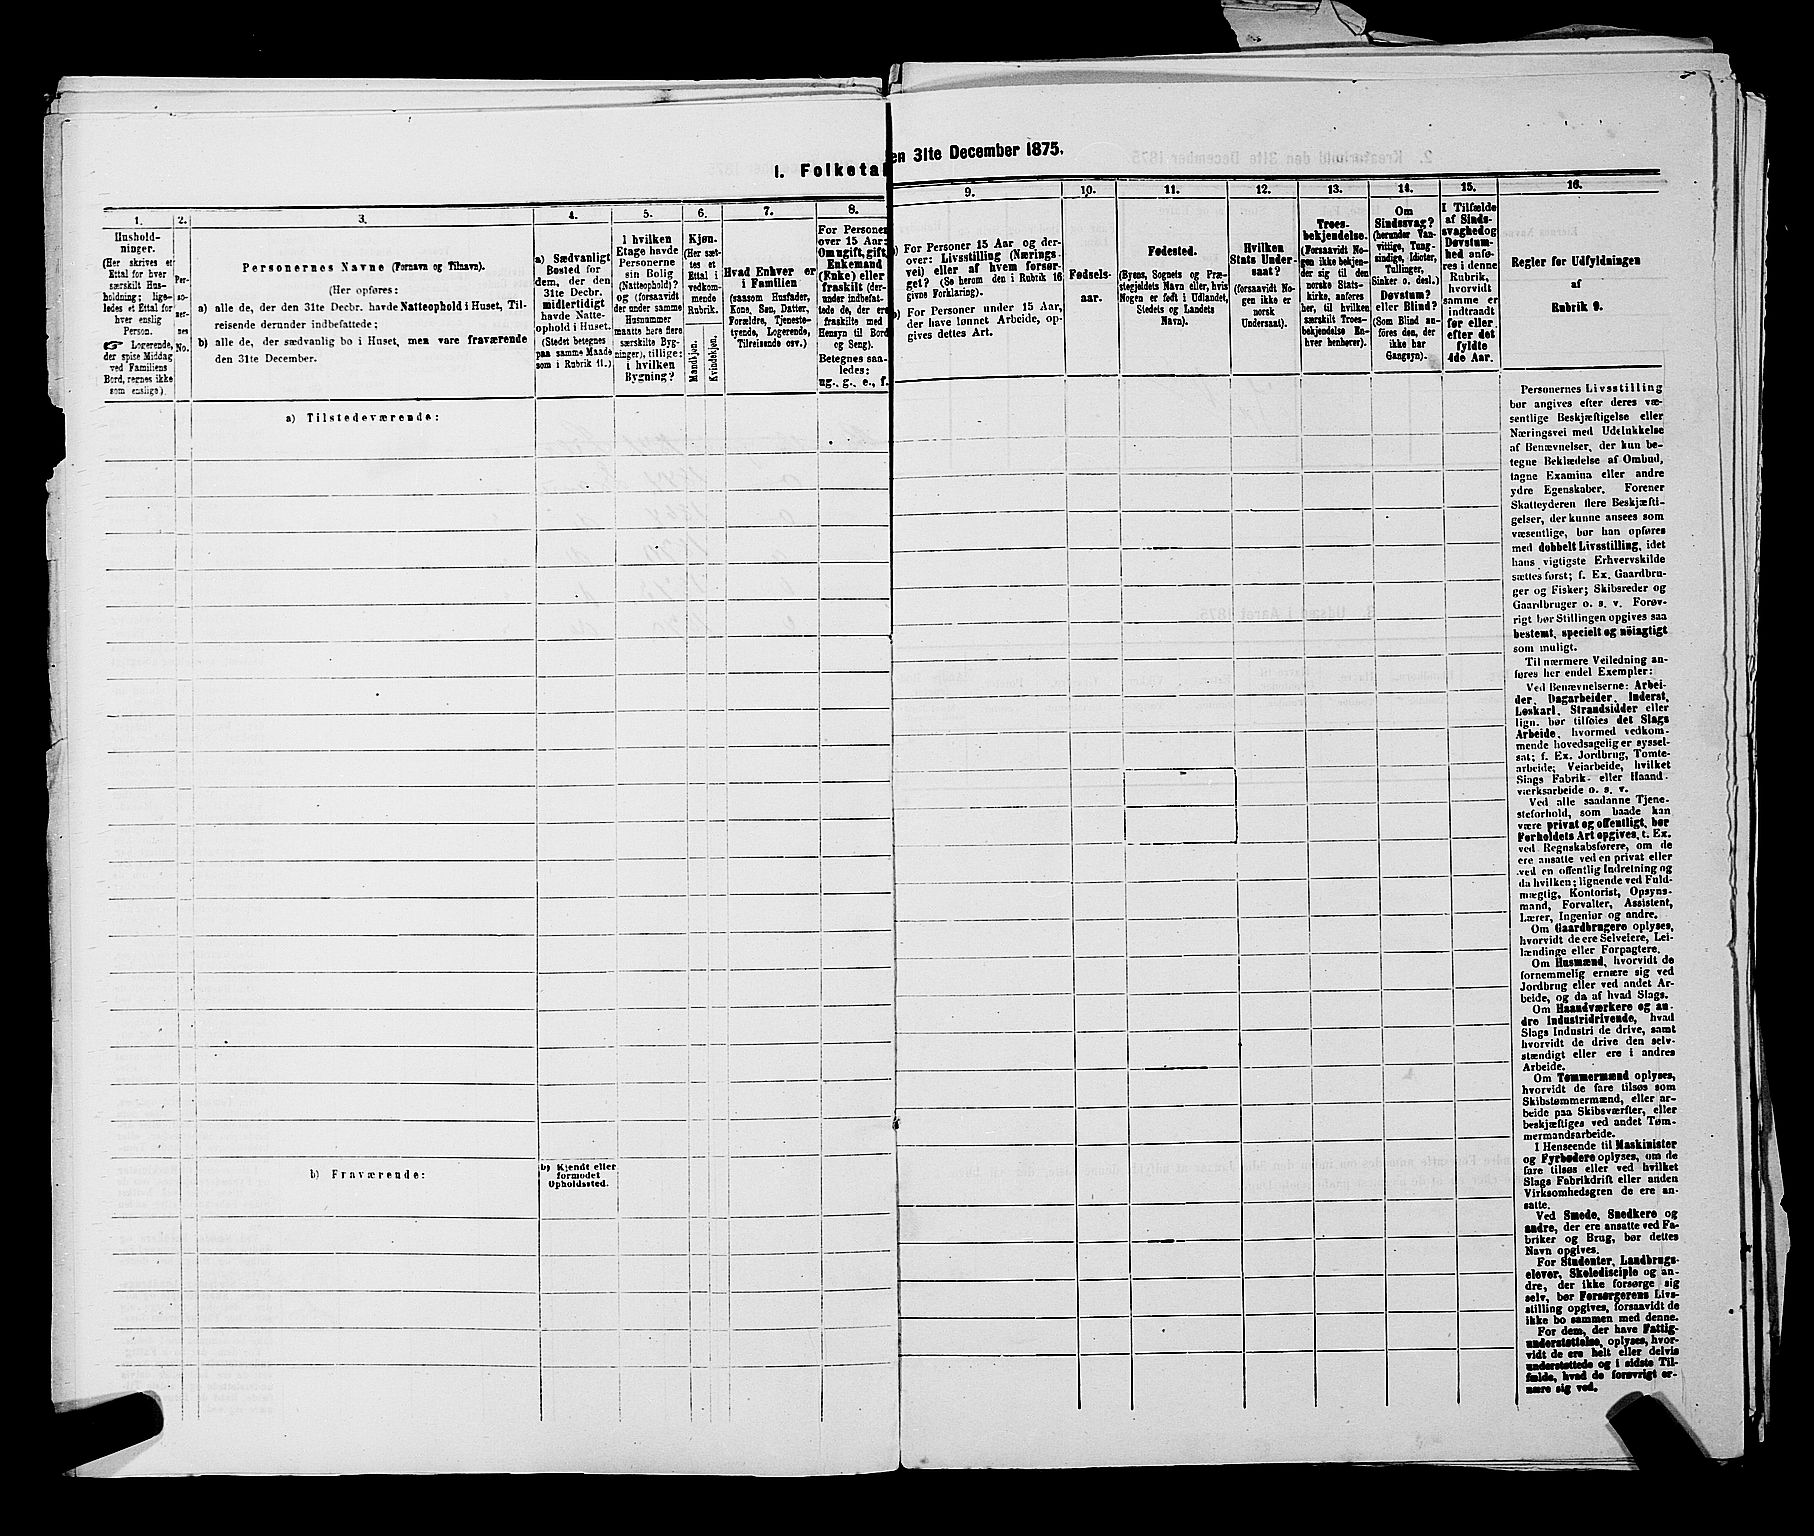 I. Folketal
en 31te December 1875.
1.
2.
3.
4.
5.
6.
7.
8.
9.
10.
11.
12.
13.
14.
15.
16.
Hushold-
ninger.
(Her skrives et
Ettal for hver
særskilt Hus-
holdning; lige-
ledes et Ettal
for hver enslig
Person.
☞ Logerende,
der spise Middag
ved Familiens
Bord, regnes ikke
som enslige).
Per-
so-
ner-
nes
No.
Personernes Navne (Fornavn og Tilnavn).
(Her opføres:
a) alle de, der den 31te Decbr. havde Natteophold i Huset, Til-
reisende derunder indbefattede;
b) alle de, der sædvanlig bo i Huset, men vare fraværende
den 31te December.
a) Sædvanligt
Bosted for
dem, der den
31te Decbr.
midlertidigt
havde Natte-
ophold i Huset.
(Stedet betegnes
paa samme Maade
som i Rubrik 11.)
I hvilken
Etage havde
Personerne
sin Bolig
(Natteophold)?
og (forsaavidt
der under samme
Husnummer
maatte høre flere
særskilte Byg-
ninger), tillige:
i hvilken
Bygning?
Kjøn.
(Her sæt-
tes et
Ettal i
vedkom-
mende
Rubrik.
Mandkjøn.
Kvindekjøn.
Hvad Enhver er
i Familien
(saasom Husfader,
Kone, Søn, Datter,
Forældre, Tjeneste-
tyende, Logerende,
Tilreisende osv.)
For Personer
over 15 Aar:
Om ugift, gift,
Enkemand
(Enke) eller
fraskilt (der-
under indbefat-
tede de, der ere
fraskilte med
Hensyn til Bord
og Seng).
Betegnes saa-
ledes:
ug., g., e., f.
) For Personer 15 Aar og der-
over: Livsstilling (Nærings-
vei) eller af hvem forsør-
get? (Se herom den i Rubrik 16
givne Forklaring).
) For Personer under 15 Aar,
der have lønnet Arbeide, op-
gives dettes Art.
Fødsels-
aar.
Fødested.
(Byens, Sognets og Præ-
stegjeldets Navn eller, hvis
Nogen er født i Udlandet,
Stedets og Landets
Navn).
Hvilken
Stats Under-
saat?
(forsaavidt No-
gen ikke er
norsk
Undersaat).
Troes-
bekjendelse.
(Forsaavidt No-
gen ikke bekjen-
der sig til den
norske Stats-
kirke, anføres
her, til hvilken
særskilt Troes-
bekjendelse En-
hver henhører).
Om
Sindssvag?
(herunder Van-
vittige, Tung-
sindige, Idioter,
Tullinger,
Sinker o. desl.)
Døvstum?
eller Blind?
(Som Blind an-
føres den, der
ikke har
Gangsyn).
I Tilfælde
af Sinds-
svaghed og
Døvstum-
hed anfø-
res i denne
Rubrik,
hvorvidt
samme er
indtraadt
før eller
efter det
fyldte
4de Aar.
Regler for Udfyldningen
af
Rubrik 9.
a) Tilstedeværende:
b) Fraværende:
b) Kjendt eller
formodet
Opholdssted.
Personernes Livsstilling
bør angives efter deres væ-
sentlige Beskjæftigelse eller
Næringsvei med Udelukkelse
af Benævnelser, der kun be-
tegne Beklædelse af Ombud,
tagne Examina eller andre
ydre Egenskaber. Forener
Skatteyderen flere Beskjæfti-
gelser, der kunne ansees som
væsentlige, bør han opføres
med dobbelt Livsstilling, idet
hans vigtigste Erhvervskilde
sættes først; f. Ex. Gaardbru-
ger og Fisker; Skibsreder og
Gaardbruger o. s. v. Forøv-
rigt bør Stillingen opgives saa
bestemt, specielt og nöiagtigt
som muligt.
Til nærmere Veiledning an-
føres her endel Exempler:
Ved Benævnelserne: Arbei-
der, Dagarbeider, Inderst,
Løskarl, Strandsidder eller
lign. bør tilføies det Slags
Arbeide, hvormed vedkom-
mende hovedsagelig er syssel-
sat; f. Ex. Jordbrug, Tomte-
arbeide; Veiarbeide, hvilket
Slags Fabrik- eller Haand-
værksarbeide o. s. v.
Ved alle saadanne Tjene-
steforhold, som baade kan
være privat og offentligt, bør
Forholdets Art opgives, t. Ex.
ved Regnskabsførere, om de
ere ansatte ved en privat eller
ved en offentlig Indretning og
da hvilken; lignende ved Fuld-
mægtig, Kontorist, Opsyns-
mand, Forvalter, Assistent,
Lærer, Ingeniør og andre.
Om Gaardbrugere oplyses,
hvorvidt de ere Selveiere, Lei-
lændinge eller Forpagtere.
Om Husmænd, hvorvidt de
fornemmelig ernære sig ved
Jordbrug eller ved andet Ar-
beide, og da af hvad Slags.
Om Haandværkere og an-
dre Industridrivende, hvad
Slags Industri de drive, samt
hvorvidt de drive den selv-
stændigt eller ere i andres
Arbeide.
Om Tømmermænd oplyses,
hvorvidt de fare tilsøs som
Skibstømmermænd, eller ar-
beide paa Skibsværfter, eller
beskjæftiges ved andet Tøm-
mermandsarbeide.
I Henseende til Maskinister
og Fyrbødere oplyses, om de
fare tilsøs eller ved hvilket
Slags Fabrikdrift eller anden
Virksomhedsgren de ere an-
satte.
Ved Smede, Snedkere og
andre, der ere ansatte ved Fa-
briker og Brug, bør dettes
Navn opgives.
For Studenter, Landbrugs-
elever, Skoledisciple og an-
dre, der ikke forsørge sig
selv, bør Forsørgerens Livs-
stilling opgives, forsaavidt de
ikke bo sammen med denne.
For dem, der have Fattig-
understøttelse, oplyses, hvor-
vidt de ere helt eller delvis
understøttede og i sidste Til-
fælde, hvad de forøvrigt er-
nære sig ved.